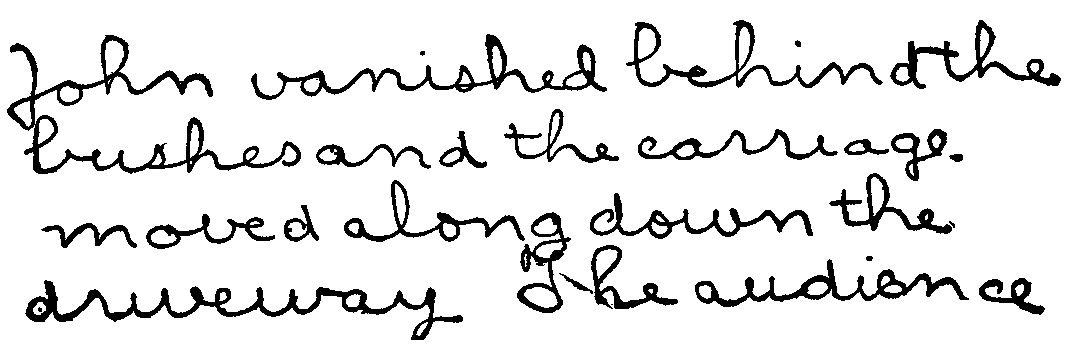 John vanished behind the
bushes and the carriage.
moved along down the
driveway The audience